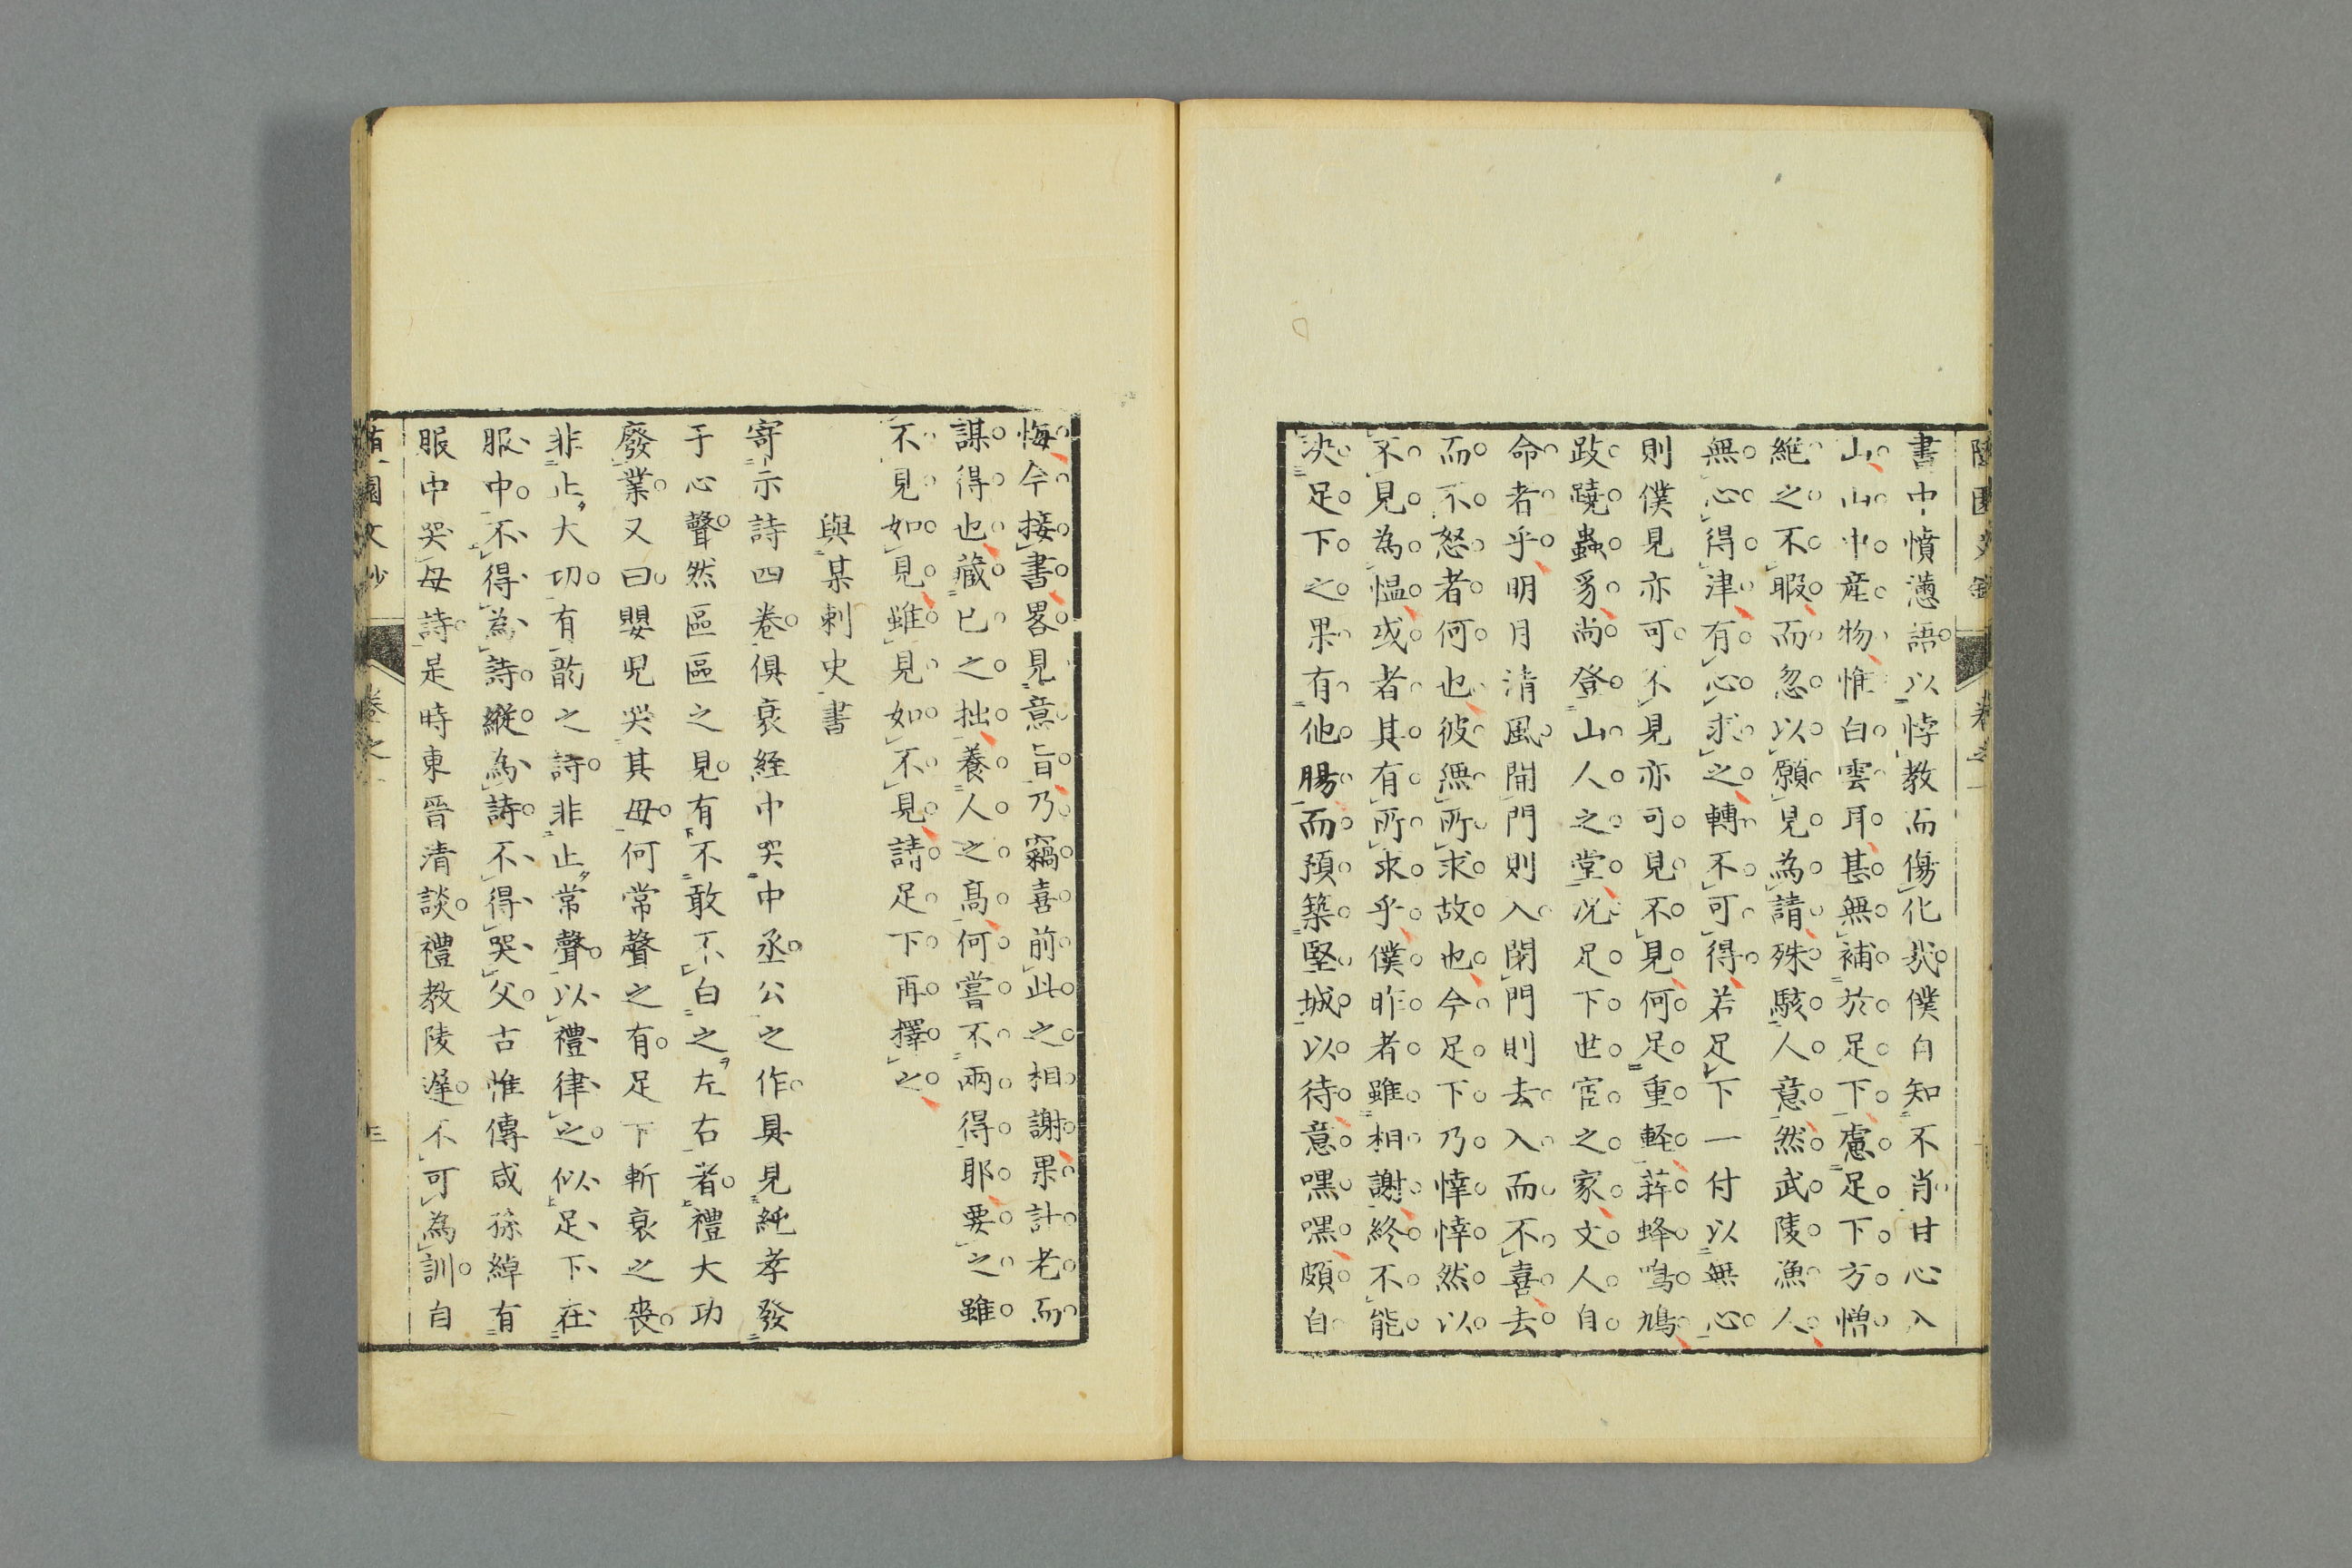 書中憤懣語以悖教而傷化哉僕自知不肖甘心入
山山中産物惟白雲耳甚無補於足下慮足下方憎
絶之不暇而忽以願見為請殊駭人意然武陵漁人
無心得津有心求之轉不可得若足下一付以無心
則僕見亦可不見亦可見不見何足重輕莽蜂鳴鳩
跂蹺蟲豸尚登山人之堂况足下世宦之家文人自
命者乎明月清風開門則入閉門則去入而不喜去
而不怒者何也彼無所求故也今足下乃悻悻然以
不見為慍或者其有所求乎僕昨者雖相謝終不能
决足下之果有他腸而預築堅城以待意嘿嘿頗自
悔今接書畧見意旨乃竊喜前此之相謝果計老而
謀得也藏已之拙養人之高何嘗不兩得耶要之雖
不見如見雖見如不見請足下再擇之
與某刺史書
寄示詩四卷俱衰絰中哭中丞公之作具見純孝發
于心聲然區區之見有不敢不白之左右者禮大功
廢業又曰嬰兒哭其母何常聲之有足下斬衰之喪
非止大功有韵之詩非止常聲以禮律之似足下在
服中不得為詩縱為詩不得哭父古惟傅咸孫綽有
服中哭母詩是時東晋清談禮教陵遲不可為訓自
園文抄 卷之一 三